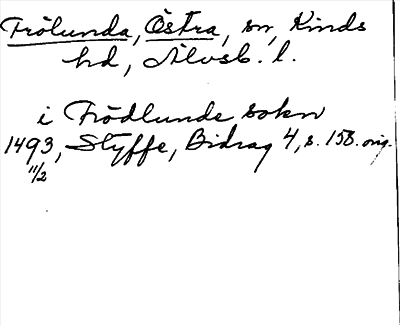 Frölunda, Östra, sn, Kinds
hd, Älvsb. l.
i Frödlunde sokn
1493, Styffe, Bidrag 4, s. 158. orig.
11/2